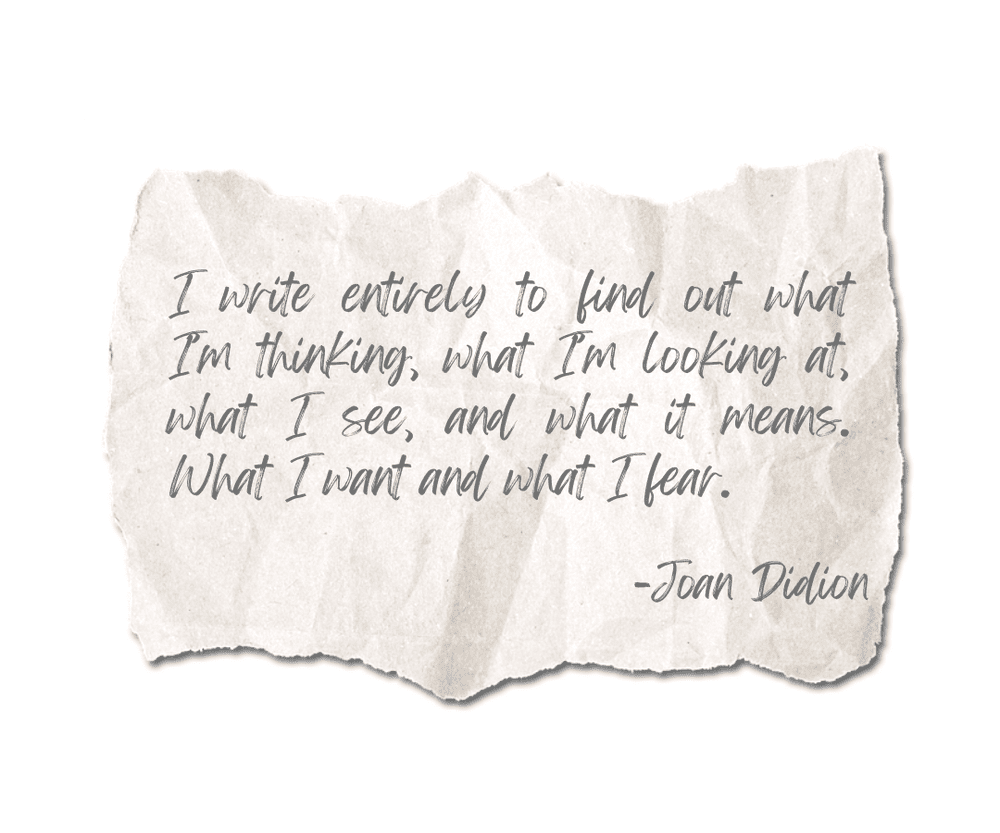 I write entirely to find out what
I'm thinking, what I'm looking at,
what I see, and what it means.
What I want and what I fear.
-Joan Didion